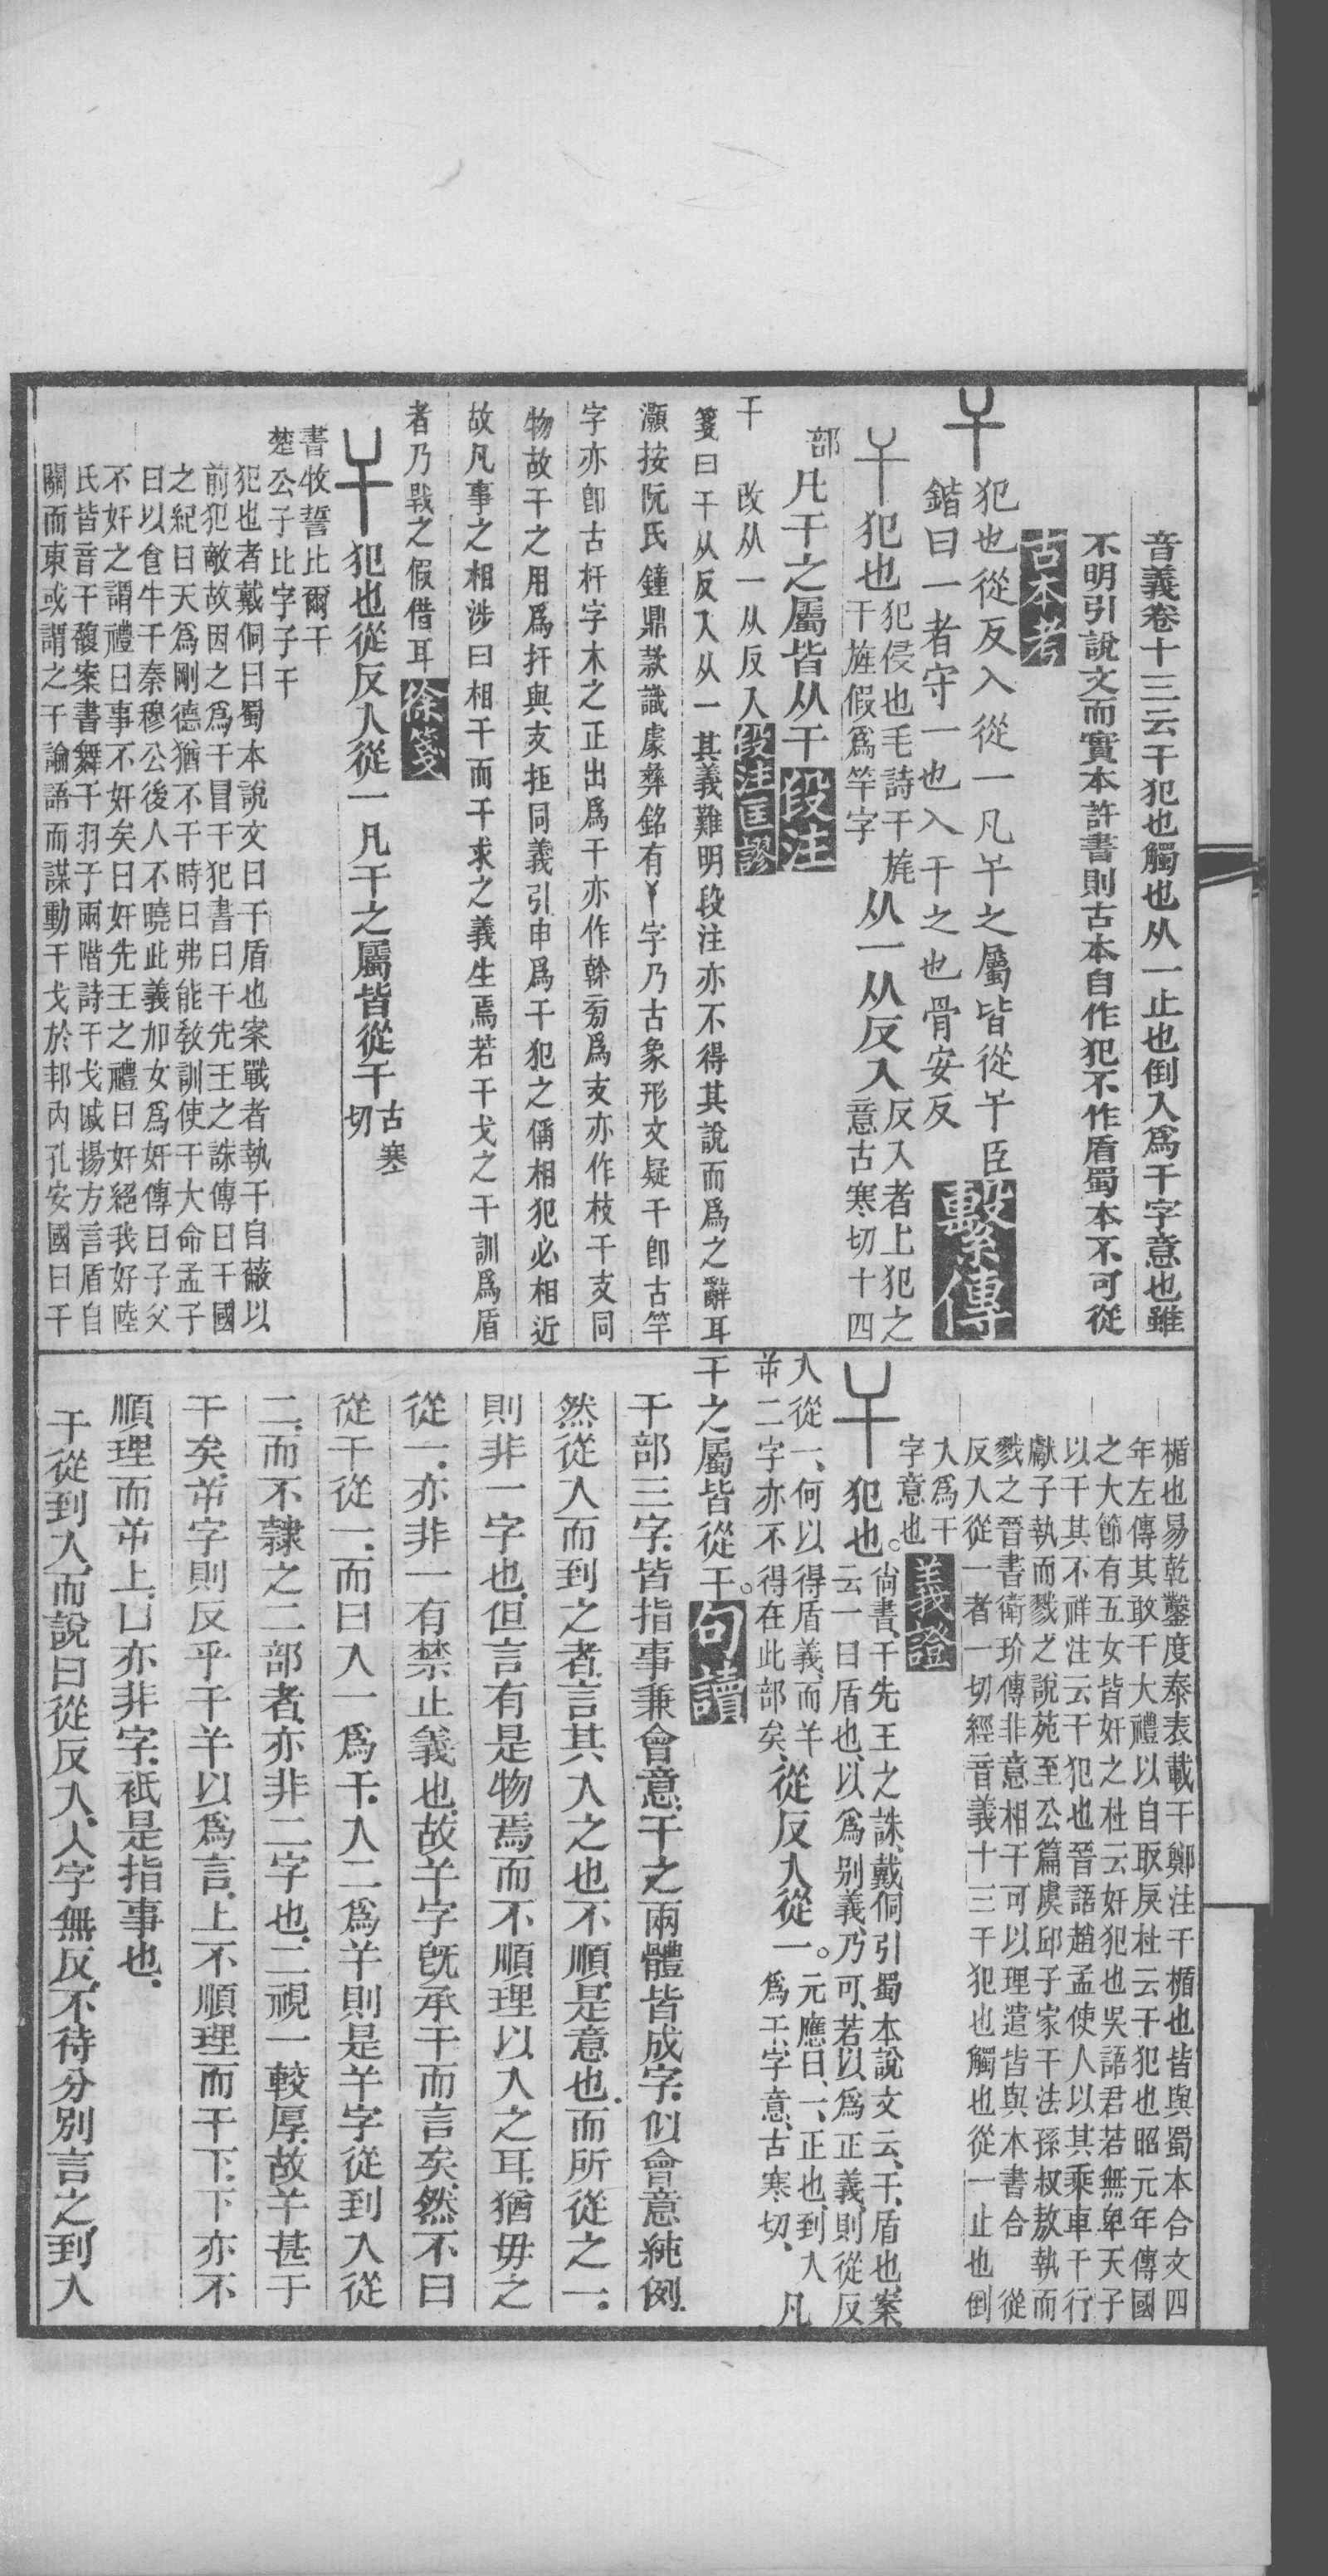 音義卷十三云干犯也觸也从一止也倒入爲干字意也雖
不明引說文而實本許書則古本自作犯不作盾蜀本不可從
古本考
犯也從反入從一凡干之屬皆從干臣
鍇曰一者守一也入干之也骨安反
繫傳
犯也
犯侵也毛詩干旄
干旌假爲竿字
从一从反入
反入者上犯之
意古寒切十四
部
凡干之屬皆从干
段注
干
改从一从反入
段注匡謬
箋曰干从反入从一其義難明段注亦不得其說而爲之辭耳
灝按阮氏鐘鼎款識䖍彝銘有丫字乃古象形文疑干卽古竿
字亦卽古杆字木之正出爲干亦作榦㫄爲支亦作枝干支同
物故干之用爲扞與支拒同義引申爲干犯之偁相犯必相近
故凡事之相涉曰相干而干求之義生焉若干戈之干訓爲盾
者乃戰之假借耳
徐箋
犯也從反入從一凡干之屬皆從干
古寒
切
書牧誓比爾干
楚公子比字子干
犯也者戴侗曰蜀本說文曰干盾也案戰者執干自蔽以
前犯敵故因之爲干冒干犯書曰干先王之誅傳曰干國
之紀曰天爲剛德猶不干時曰弗能敎訓使干大命孟子
曰以食牛干秦穆公後人不曉此義加女爲奸傳曰子父
不奸之謂禮曰事不奸矣曰奸先王之禮曰奸絕我好陸
氏皆音干馥案書舞干羽于兩階詩干戈戚揚方言盾自
關而東或謂之干論語而謀動干戈於邦內孔安國曰干
楯也易乾鑿度泰表載干鄭注干楯也皆與蜀本合文四
年左傳其敢干大禮以自取戾杜云干犯也昭元年傳國
之大節有五女皆奸之杜云奸犯也吳語君若無卑天子
以干其不祥注云干犯也晉語趙孟使人以其乘車干行
獻子執而戮之說苑至公篇虞邱子家干法孫叔敖執而
戮之晉書衛玠傳非意相干可以理遣皆與本書合 從
反入從一者一切經音義十三干犯也觸也從一止也倒
入爲干
字意也
義證
犯也。
尙書、干先王之誅、戴侗引蜀本說文云、干、盾也、案
云一曰盾也、以爲別義、乃可、若以爲正義、則從反
入從一、何以得盾義、而𢆉
屰二字亦不得在此部矣、
從反入從一。
元應曰、一、正也、到入
爲干、字意、古寒切、
凡
干之屬皆從干。
句讀
干部三字、皆指事兼會意、干之兩體皆成字、似會意純例、
然從入而到之者、言其入之也不順、是意也、而所從之一、
則非一字也、但言有是物焉、而不順理以入之耳、猶毋之
從一、亦非一有禁止義也、故𢆉字旣承干而言矣、然不曰
從干從一、而曰入一爲干、入二爲𢆉、則是𢆉字從到入從
二、而不隸之二部者、亦非二字也、二視一較厚、故𢆉甚于
干矣、屰字則反乎干𢆉以爲言、上不順理而干下、下亦不
順理而屰上、凵亦非字、祇是指事也、
干從到入、而說曰從反入、入字無反、不待分別言之、到入